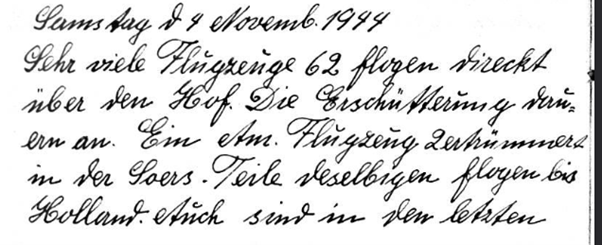 Samstag d 4 Novemb. 1944
Sehr viele Flugzeuge 62 flogen direckt
über den Hof. Die Erschütterung dau=
ern an. Ein Am. Flugzeug Zertrümmert
in der Soers. Teile deselbigen flogen bis
Holland. Auch sind in den letzten